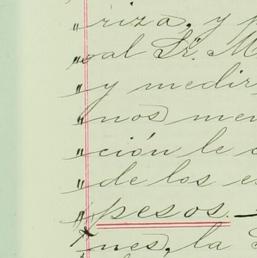 "riza, y
"al Sr. M
"y medir
"nos men
"ción le
"de los e
"pesos.—
nes, la